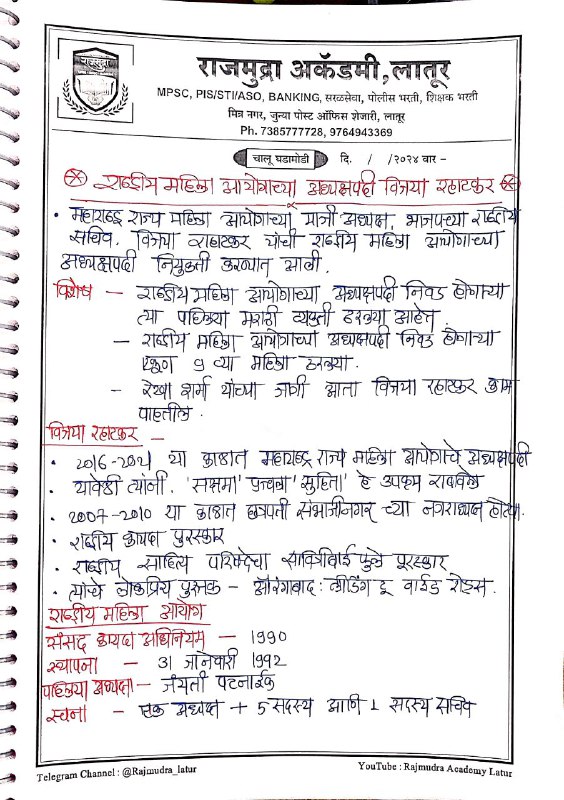 राजमुद्रा
राजमुद्रा अकॅडमी,लातूर
MPSC, PIS/STI/ASO, BANKING, सरळसेवा, पोलीस भरती, शिक्षक भरती
मित्र नगर, जुन्या पोस्ट ऑफिस शेजारी, लातूर
Ph. 7385777728, 9764943369
चालू घडामोडी दि. / /२०२४ वार -
राष्ट्रीय महिला आयोगाच्या अध्यक्षपदी विजया रहाटकर
• महाराष्ट्र राज्य महिला आयोगाच्या माजी अध्यक्ष, भाजपच्या राष्ट्रीय
सचिव. विजया राहाटकर यांची राष्ट्रीय महिला आयोगाच्या
अध्यक्षपदी नियुक्ती करण्यात आली.
विशेष – राष्ट्रीय महिला आयोगाच्या अध्यक्षपदी निवड होणाऱ्या
त्या पहिल्या मराठी व्यक्ती ठरल्या आहेत.
– राष्ट्रीय महिला आयोगाच्या अध्यक्षपदी निवड होणाऱ्या
एकूण ९ व्या महिला ठरल्या.
– रेखा शर्मा यांच्या जागी आता विजया रहाटकर काम
पाहतील.
विजया रहाटकर –
• 2016-2021 या काळात महाराष्ट्र राज्य महिला आयोगाचे अध्यक्षपदी
• यावेळी त्यांनी. 'सक्षमा' प्रज्वला' सुहिता' हे उपक्रम राबविले
• 2007-2010 या काळात छत्रपती संभाजीनगर च्या नगराध्यक्ष होत्या.
• राष्ट्रीय कायदा पुरस्कार
• राष्ट्रीय साहित्य परिषदेचा सावित्रीबाई फुले पुरस्कार
• त्यांचे लोकप्रिय पुस्तक – औरंगाबाद: लीडिंग टू वाईड रोड्स.
राष्ट्रीय महिला आयोग
संसद कायदा अधिनियम – 1990
स्थापना – 31 जानेवारी 1992
पहिल्या अध्यक्षा – जयंती पटनाईक
रचना – एक अध्यक्ष + 5 सदस्य आणि 1 सदस्य सचिव
Telegram Channel : @Rajmudra_latur
YouTube : Rajmudra Academy Latur